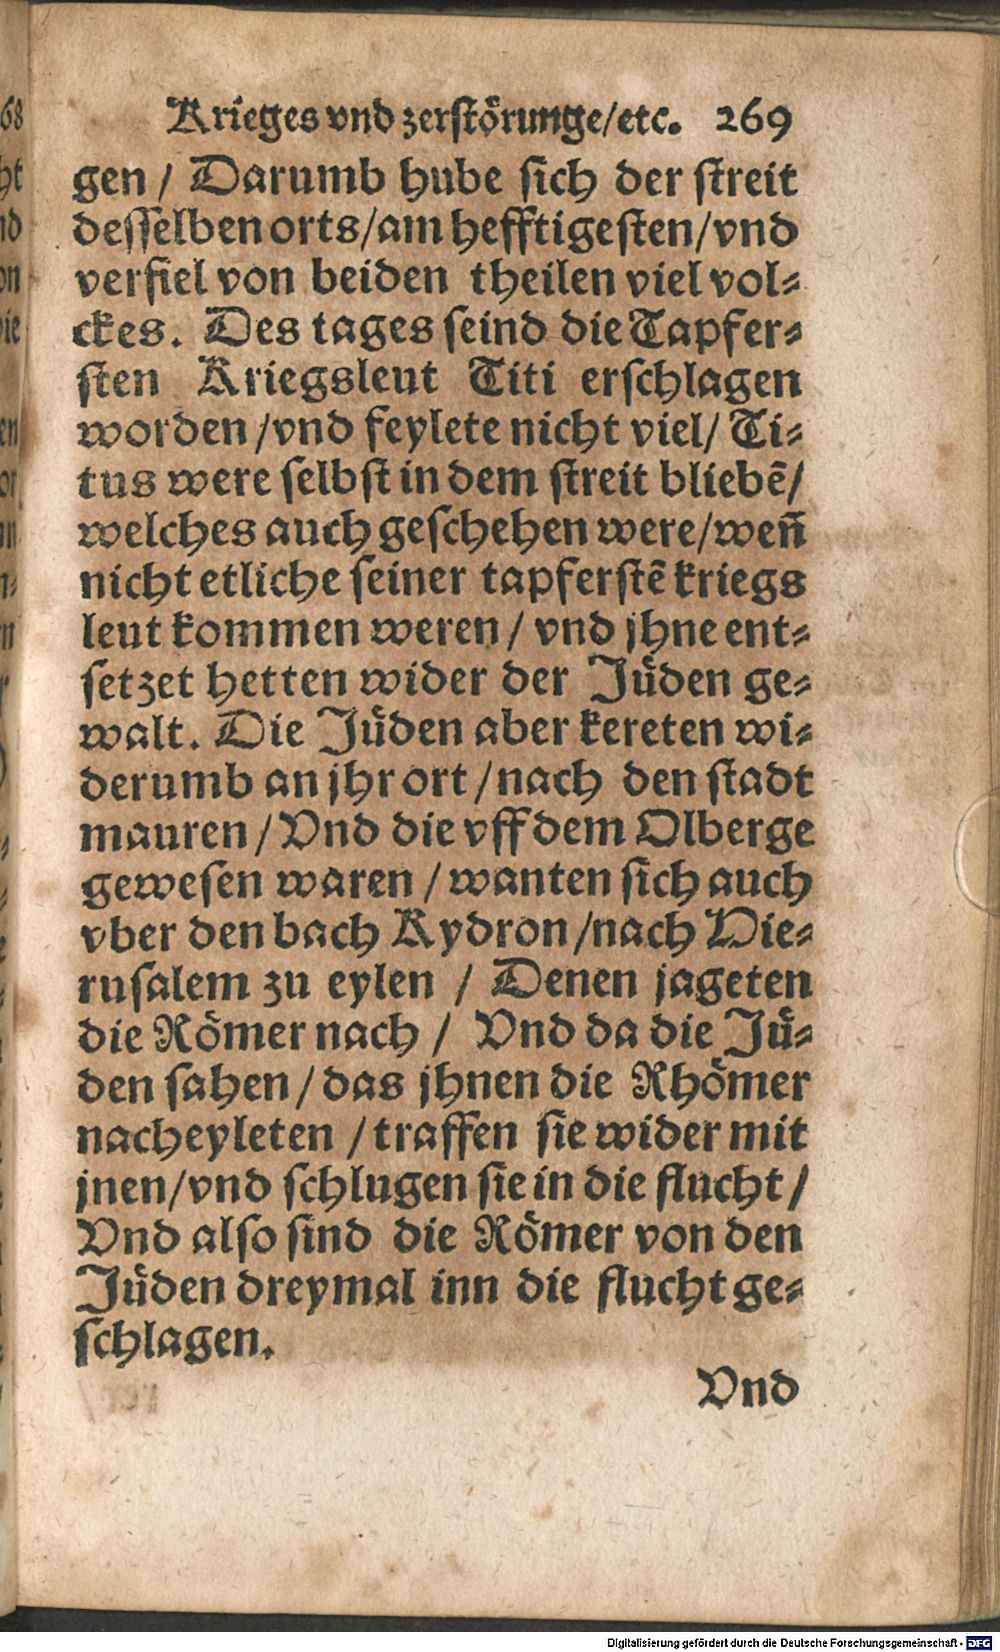 Krieges vnd zerstörunge/etc. 269
gen / Darumb hube sich der streit
desselben orts/am hefftigesten/vnd
verfiel von beiden theilen viel vol-
ckes. Des tages seind die Tapfer-
sten Kriegsleut Titi erschlagen
worden /vnd feylete nicht viel/ Ti-
tus were selbst in dem streit bliebē/
welches auch geschehen were/weñ
nicht etliche seiner tapferstē kriegs
leut kommen weren / vnd jhne ent-
setzet hetten wider der Jüden ge-
walt. Die Jüden aber kereten wi-
derumb an jhr ort /nach den stadt
mauren / Vnd die vff dem Olberge
gewesen waren / wanten sich auch
vber den bach Kydron /nach Hie-
rusalem zu eylen / Denen jageten
die Römer nach / Vnd da die Jü-
den sahen / das jhnen die Rhömer
nacheyleten / traffen sie wider mit
jnen/vnd schlugen sie in die flucht /
Vnd also sind die Römer von den
Jüden dreymal inn die flucht ge-
schlagen.
Vnd
Digitalisierung gefördert durch die Deutsche Forschungsgemeinschaft - DFG